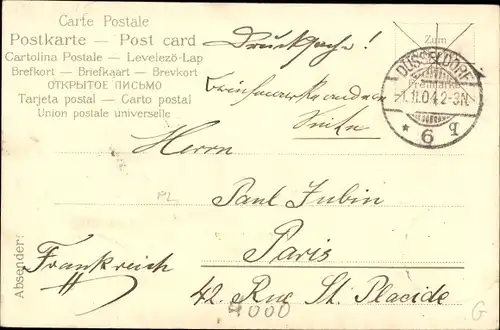 Carte Postale
Postkarte — Post card
Cartolina Postale — Levelező-Lap
Brefkort — Briefkaart — Brevkort
ОТКРЫТОЕ ПИСЬМО
Tarjeta postal — Carto postal
Union postale universelle
Drucksache!
Briefmarke andere
Seite
Zum
Freimarke
DÜSSELDORF
1.11.04.2-3N
* 6 q
Herrn
Paul Jubin
Paris
Frankreich
42. Rue St. Placide
Absender:
4000
G